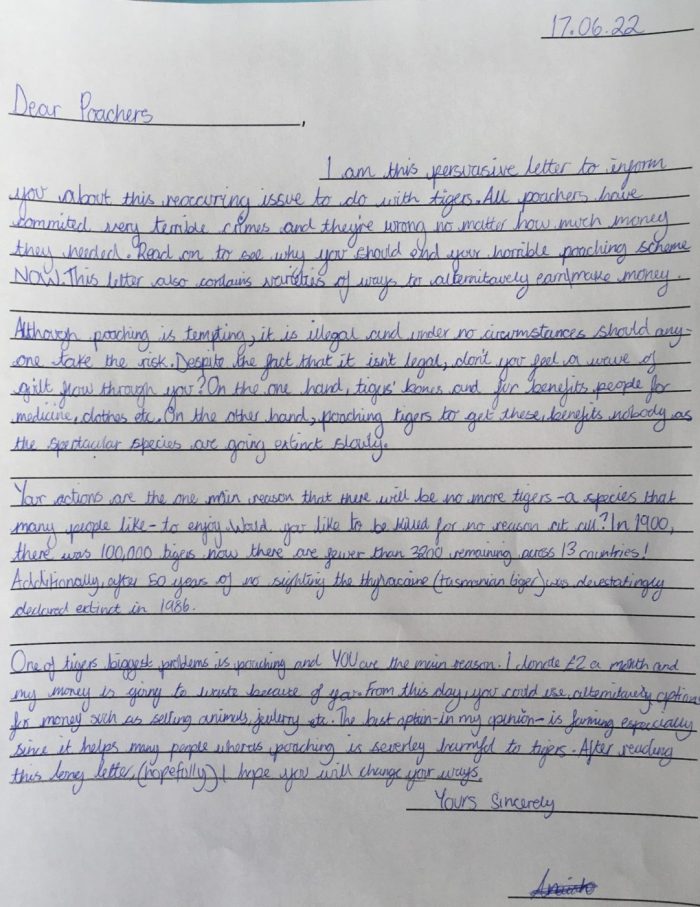 17.06.22
Dear Poachers,
I am this persuasive letter to inform
you about this reoccuring issue to do with tigers. All poachers have
commited very terrible crimes and they're wrong no matter how much money
they needed. Read on to see why you should end your horrible poaching scheme
NOW. This letter also contains varieties of ways to alternitavely earn/make money.
Although poaching is tempting, it is illegal and under no circumstances should any-
one take the risk. Despite the fact that it isn't legal, don't you feel a wave of
gilt flow through you? On the one hand, tigers' bones and fur benefits people for
medicine, clothes etc. On the other hand, poaching tigers to get these, benefits nobody as
the spectacular species are going extinct slowly.
Your actions are the one main reason that there will be no more tigers - a species that
many people like - to enjoy. Would you like to be killed for no reason at all? In 1900,
there was 100,000 tigers now there are fewer than 3200 remaining across 13 countries!
Additionally, after 50 years of no sighting the thylvacaine (tasmanian tiger) was devestatingly
declared extinct in 1986.
One of tigers biggest problems is poaching and YOU are the main reason. I donate £2 a month and
my money is going to waste because of you. From this day, you could use, alternitavely options
for money such as selling animals, jewlerry etc. The best option - in my opinion - is farming especially
since it helps many people whereas poaching is severley harmful to tigers. After reading
this long letter, (hopefully) I hope you will change your ways.
Yours Sincerely